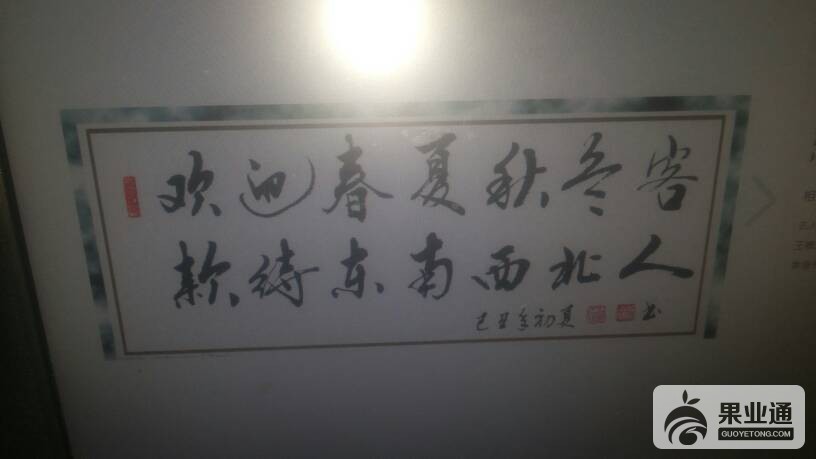 欢迎春夏秋冬客
款待东南西北人
己丑年初夏 书
果业通
GUOYETONG.COM